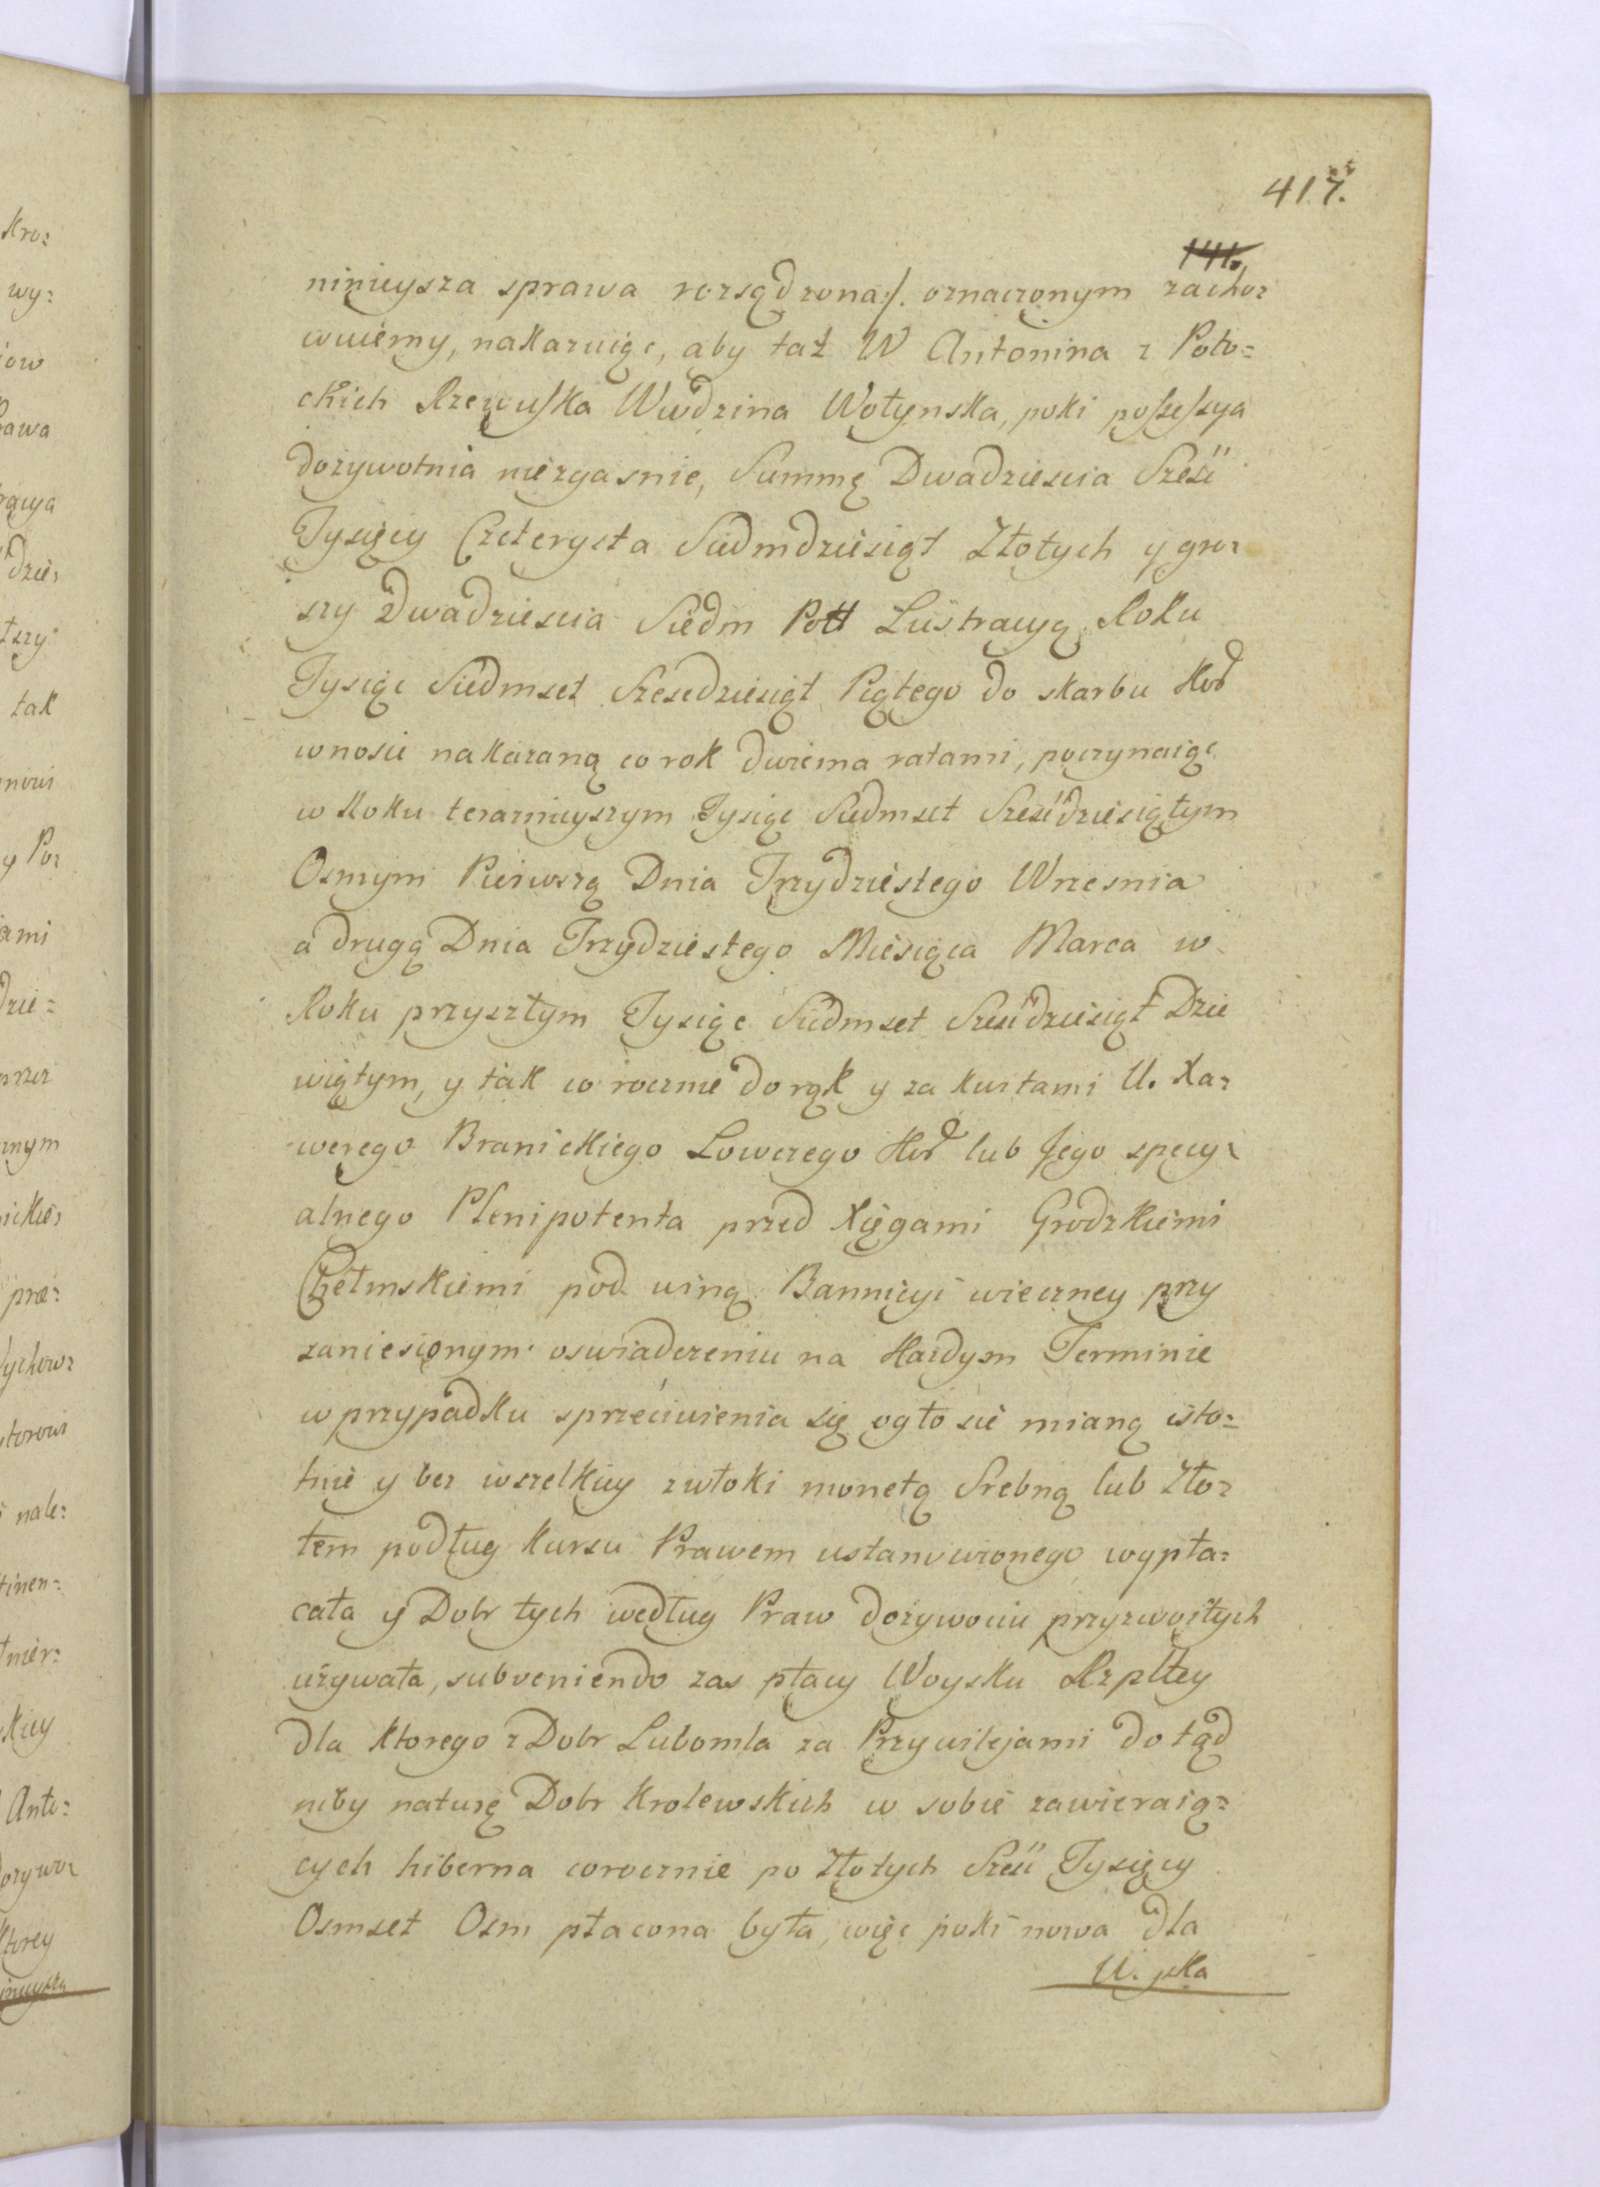 417.
141.
ninieysza sprawa rozsądzona:/. oznaczonym zacho:
wuiemy, nakazuiąc, aby taż W Antonina z Poto:
ckich Rzewuska Wwdzina Wołynska, poki possessya
dożywotnia niezgasnie, Summę Dwadziescia Sześć
Tysięcy Czterysta Siedmdziesiąt Złotych y gro:
szy Dwadziescia Siedm Pott Lustracyą Roku
Tysiąc Siedmset Szesedziesiąt Piątego do skarbu Kor
wnosic nakazaną co rok dwiema ratami, poczynaiąc
w Roku terazniejszym Tysiąc Siedmset Sześćdziesiątym
Osmym Pierwszą Dnia Trzydziestego Wrzesnia
a drugą Dnia Trzydziestego Miesiąca Marca w
Roku przyszłym Tysiąc Siedmset Sześćdziesiąt Dzie
wiątym, y tak co rocznie do rąk y za kwitami U. Xa:
werego Branickiego Lowczego Kor lub Jego specy:
alnego Plenipotenta przed Xięgami Grodzkiemi
Chełmskiemi pod winą Bannicyi wieczney przy
zaniesionym oswiadczeniu na Kazdym Terminie
w przypadku sprzeciwienia się ogłosic mianą isto:
tnie y bez wszelkiey zwłoki monetą Srebną lub Zło:
tem podług kursu Prawem ustanowionego wypła:
cała y Dobr tych według Praw dożywociu przyzwoitych
używała, subveniendo zas płacy Woysku Rzpltey
dla ktorego z Dobr Lubomla za Przywilejami do tąd
niby naturę Dobr Krolewskich w sobie zawieraią:
cych hiberna corocznie po Złotych Sześć Tysięcy
Osmset Osm płacona była, więc poki nowa dla
W. ska
Kro:
wy:
tak
y Po:
ami
dzie:
nale:
tinen:
Anto: